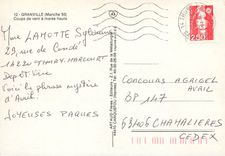 12 - GRANVILLE (Manche 50)
Coups de vent à marée haute
Mme LAMOTTE Sylviane
29, rue de Condé
14220 THURY-HARCOURT
Dépositaire
Voici la phrase mystère
d'Avril.
JOYEUSES PAQUES
2,50
CONCOURS AGRIGEL
AVRIL
BP 147
63406 CHAMALIERES
CEDEX